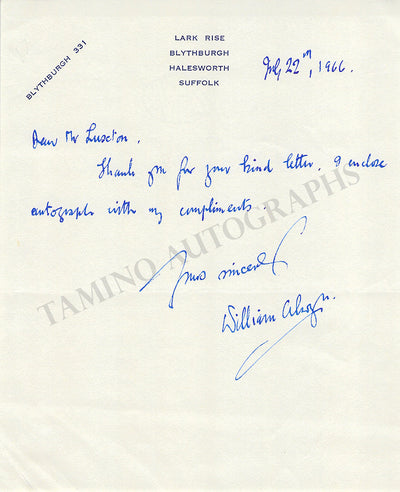 BLYTHBURGH 331
LARK RISE
BLYTHBURGH
HALESWORTH
SUFFOLK
July 22nd, 1966.
Dear Mr
Thank you for your kind letter. I enclose
autograph with my compliments.
Yours sincerely
William Alwyn.
TAMINO AUTOGRAPHS